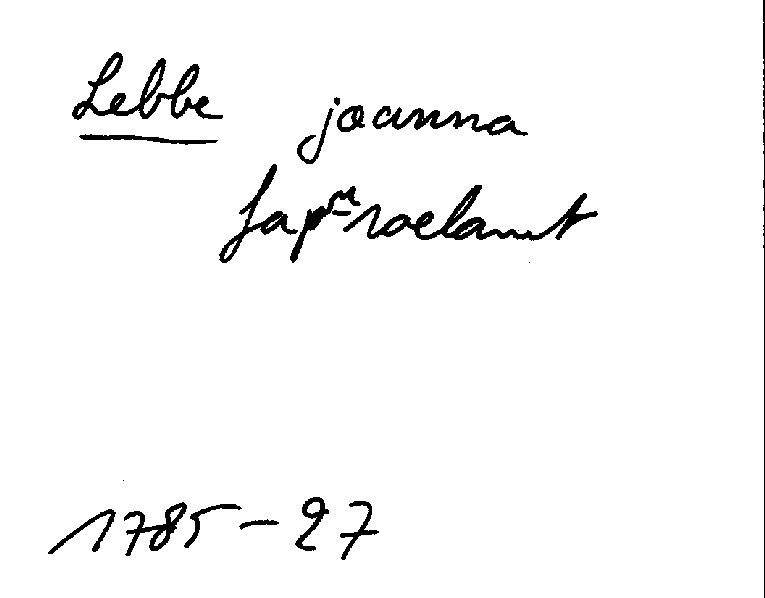 Lebbe joanna
fa pr roelant
1785 - 27